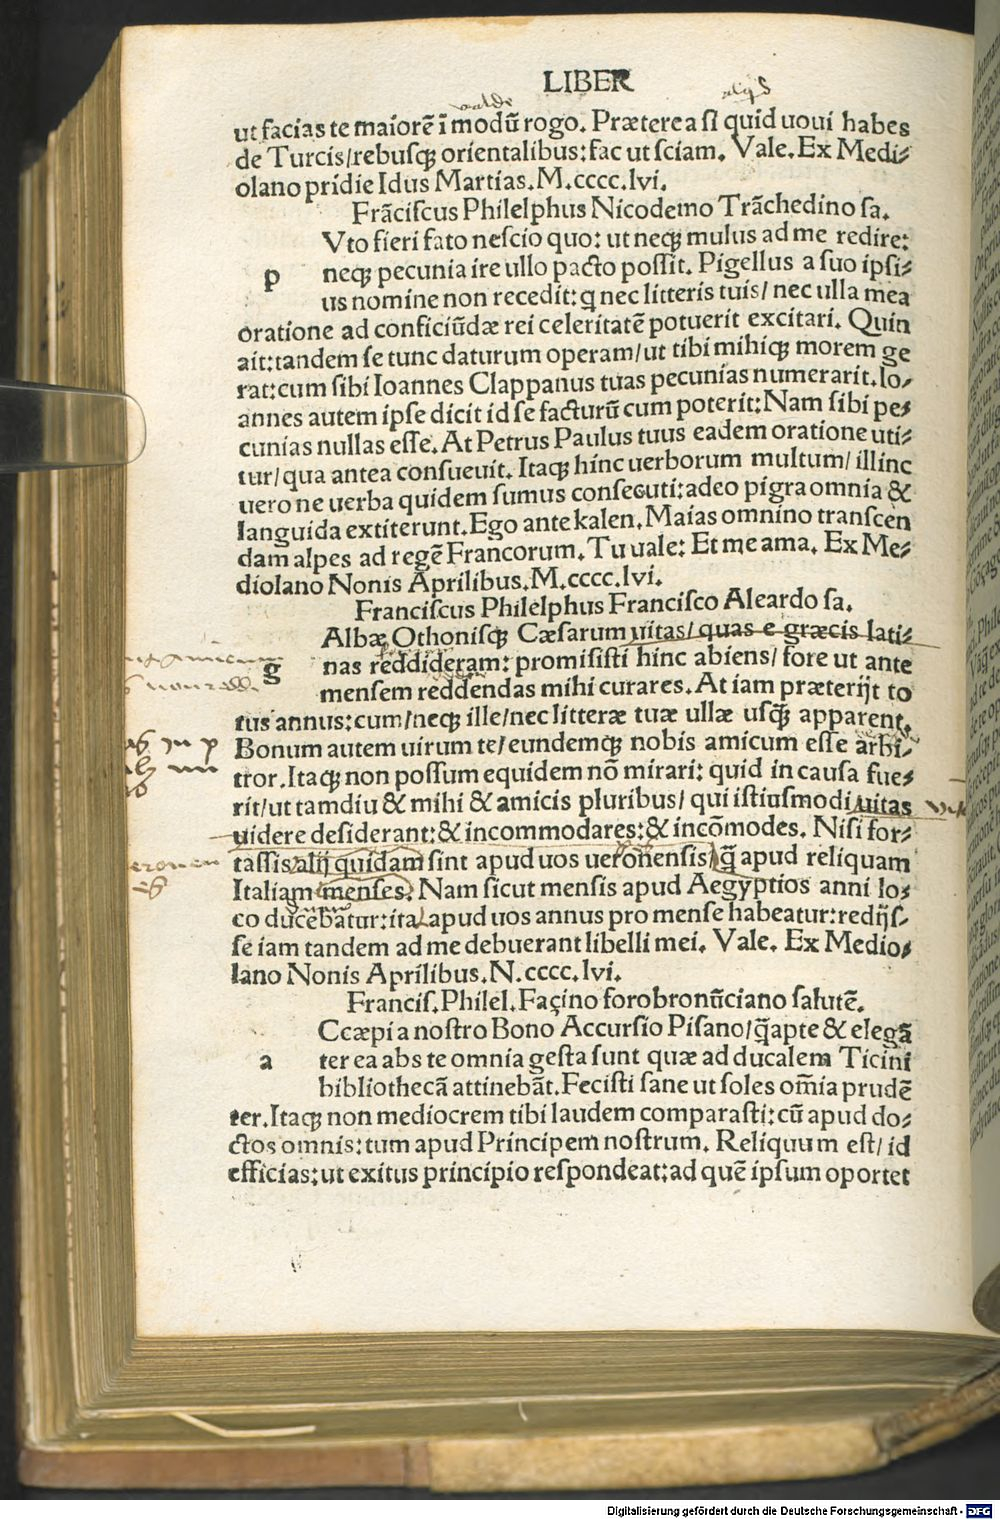 LIBER
valde
ut facias te maiorē ī modū rogo. Præterea ſi quid uoui habes
de Turcis/rebuſꝗ orientalibus: fac ut ſciam. Vale. Ex Medi⸗
olano pridie Idus Martias. M.cccc.lvi.
Frāciſcus Philelphus Nicodemo Trāchedino ſa.
Vto fieri fato neſcio quo: ut neqꝫ mulus ad me redire:
p neqꝫ pecunia ire ullo pacto poſſit. Pigellus a ſuo ipſi⸗
us nomine non recedit: ꝗ nec litteris tuis/ nec ulla mea
oratione ad conficiūdæ rei celeritatē potuerit excitari. Quin
ait: tandem ſe tunc daturum operam/ut tibi mihiqꝫ morem ge
rat: cum ſibi Ioannes Clappanus tuas pecunias numerarit. Io⸗
annes autem ipſe dicit id ſe facturū cum poterit: Nam ſibi pe⸗
cunias nullas eſſe. At Petrus Paulus tuus eadem oratione uti⸗
tur/qua antea conſueuit. Itaqꝫ hinc uerborum multum/ illinc
uero ne uerba quidem ſumus conſecuti: adeo pigra omnia &
languida extiterunt. Ego ante kalen. Maias omnino tranſcen
dam alpes ad regē Francorum. Tu uale: Et me ama. Ex Me⸗
diolano Nonis Aprilibus. M.cccc.lvi.
Franciſcus Philelphus Franciſco Aleardo ſa.
Albæ Othoniſqꝫ Cæſarum uitas/ quas e græcis lati⸗
g nas reddideram: promiſiſti hinc abiens/ fore ut ante
menſem reddendas mihi curares. At iam præterijt to
tus annus: cum/neqꝫ ille/nec litteræ tuæ ullæ uſꝗ̃ apparent.
Bonum autem uirum te/eundemqꝫ nobis amicum eſſe arbi⸗
tror. Itaqꝫ non poſſum equidem nō mirari: quid in cauſa fue⸗
rit/ut tamdiu & mihi & amicis pluribus/ qui iſtiuſmodi uitas
uidere deſiderant: & incommodares: & incōmodes. Niſi for⸗
taſſis alij quidam ſint apud uos ueronenſis ꝗ̃ apud reliquam
Italiam menſes. Nam ſicut menſis apud Aegyptios anni lo⸗
co ducebatur: ita apud uos annus pro menſe habeatur: redijſ⸗
ſe iam tandem ad me debuerant libelli mei. Vale. Ex Medio⸗
lano Nonis Aprilibus. N.cccc.lvi.
Franciſ. Philel. Façino forobronūciano ſalutē.
Ccæpi a noſtro Bono Accurſio Piſano/ꝗ̃ apte & elegā
a ter ea abs te omnia geſta ſunt quæ ad ducalem Ticini
bibliothecā attinebāt. Feciſti ſane ut ſoles om̄ia prudē
ter. Itaqꝫ non mediocrem tibi laudem comparaſti: cū apud do⸗
ctos omnis: tum apud Principem noſtrum. Reliquum eſt/ id
efficias: ut exitus principio reſpondeat: ad quē ipſum oportet
Digitalisierung gefördert durch die Deutsche Forschungsgemeinschaft - DFG